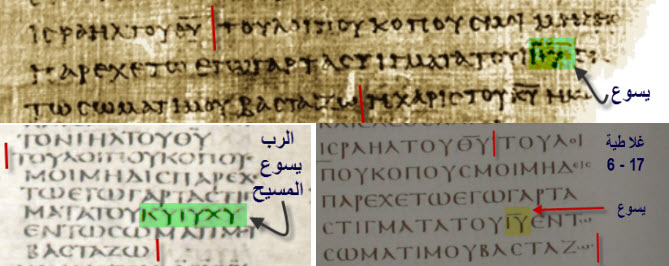 ΙϹΡΑΗΛΤΟΥΘ̅Υ̅ ΤΟΥΛΟΙΠΟΥΚΟΠΟΥϹΜΟΙ ΜΗΔΕ
ΠΑΡΕΧΕΤωΕΓωΓΑΡΤΑϹΤΙΓΜΑΤΑΤΟΥΙ̅Η̅Υ̅ ΕΝ
ΤωϹωΜΑΤΙΜΟΥΒΑϹΤΑΖω ΗΧΑΡΙϹΤΟΥΚ̅Υ̅ ΗΜ
يسوع
ΤΟΝΙΗΛΤΟΥΘ̅Υ̅
ΤΟΥΛΟΙΠΟΥΚΟΠΟΥ
ΜΟΙΜΗΔΙϹΠΑΡΕΧ
ΤωΕΓωΓΑΡΤΑϹΤΙ
ΜΑΤΑΤΟΥΚ̅Υ̅Ι̅Υ̅Χ̅Υ̅
ΕΝΤωϹωΜΑΤΙΜ
ΒΑϹΤΑΖω
الرب
يسوع
المسيح
ΙϹΡΑΗΛΤΟΥΘ̅Υ̅ ΤΟΥΛΟΙ
ΠΟΥΚΟΠΟΥϹΜΟΙΜΗΔΕΙϹ
ΠΑΡΕΧΕΤωΕΓωΓΑΡΤΑ
ϹΤΙΓΜΑΤΑΤΟΥΙ̅Υ̅ΕΝΤω
ϹωΜΑΤΙΜΟΥΒΑϹΤΑΖω
غلاطية
6 - 17
يسوع